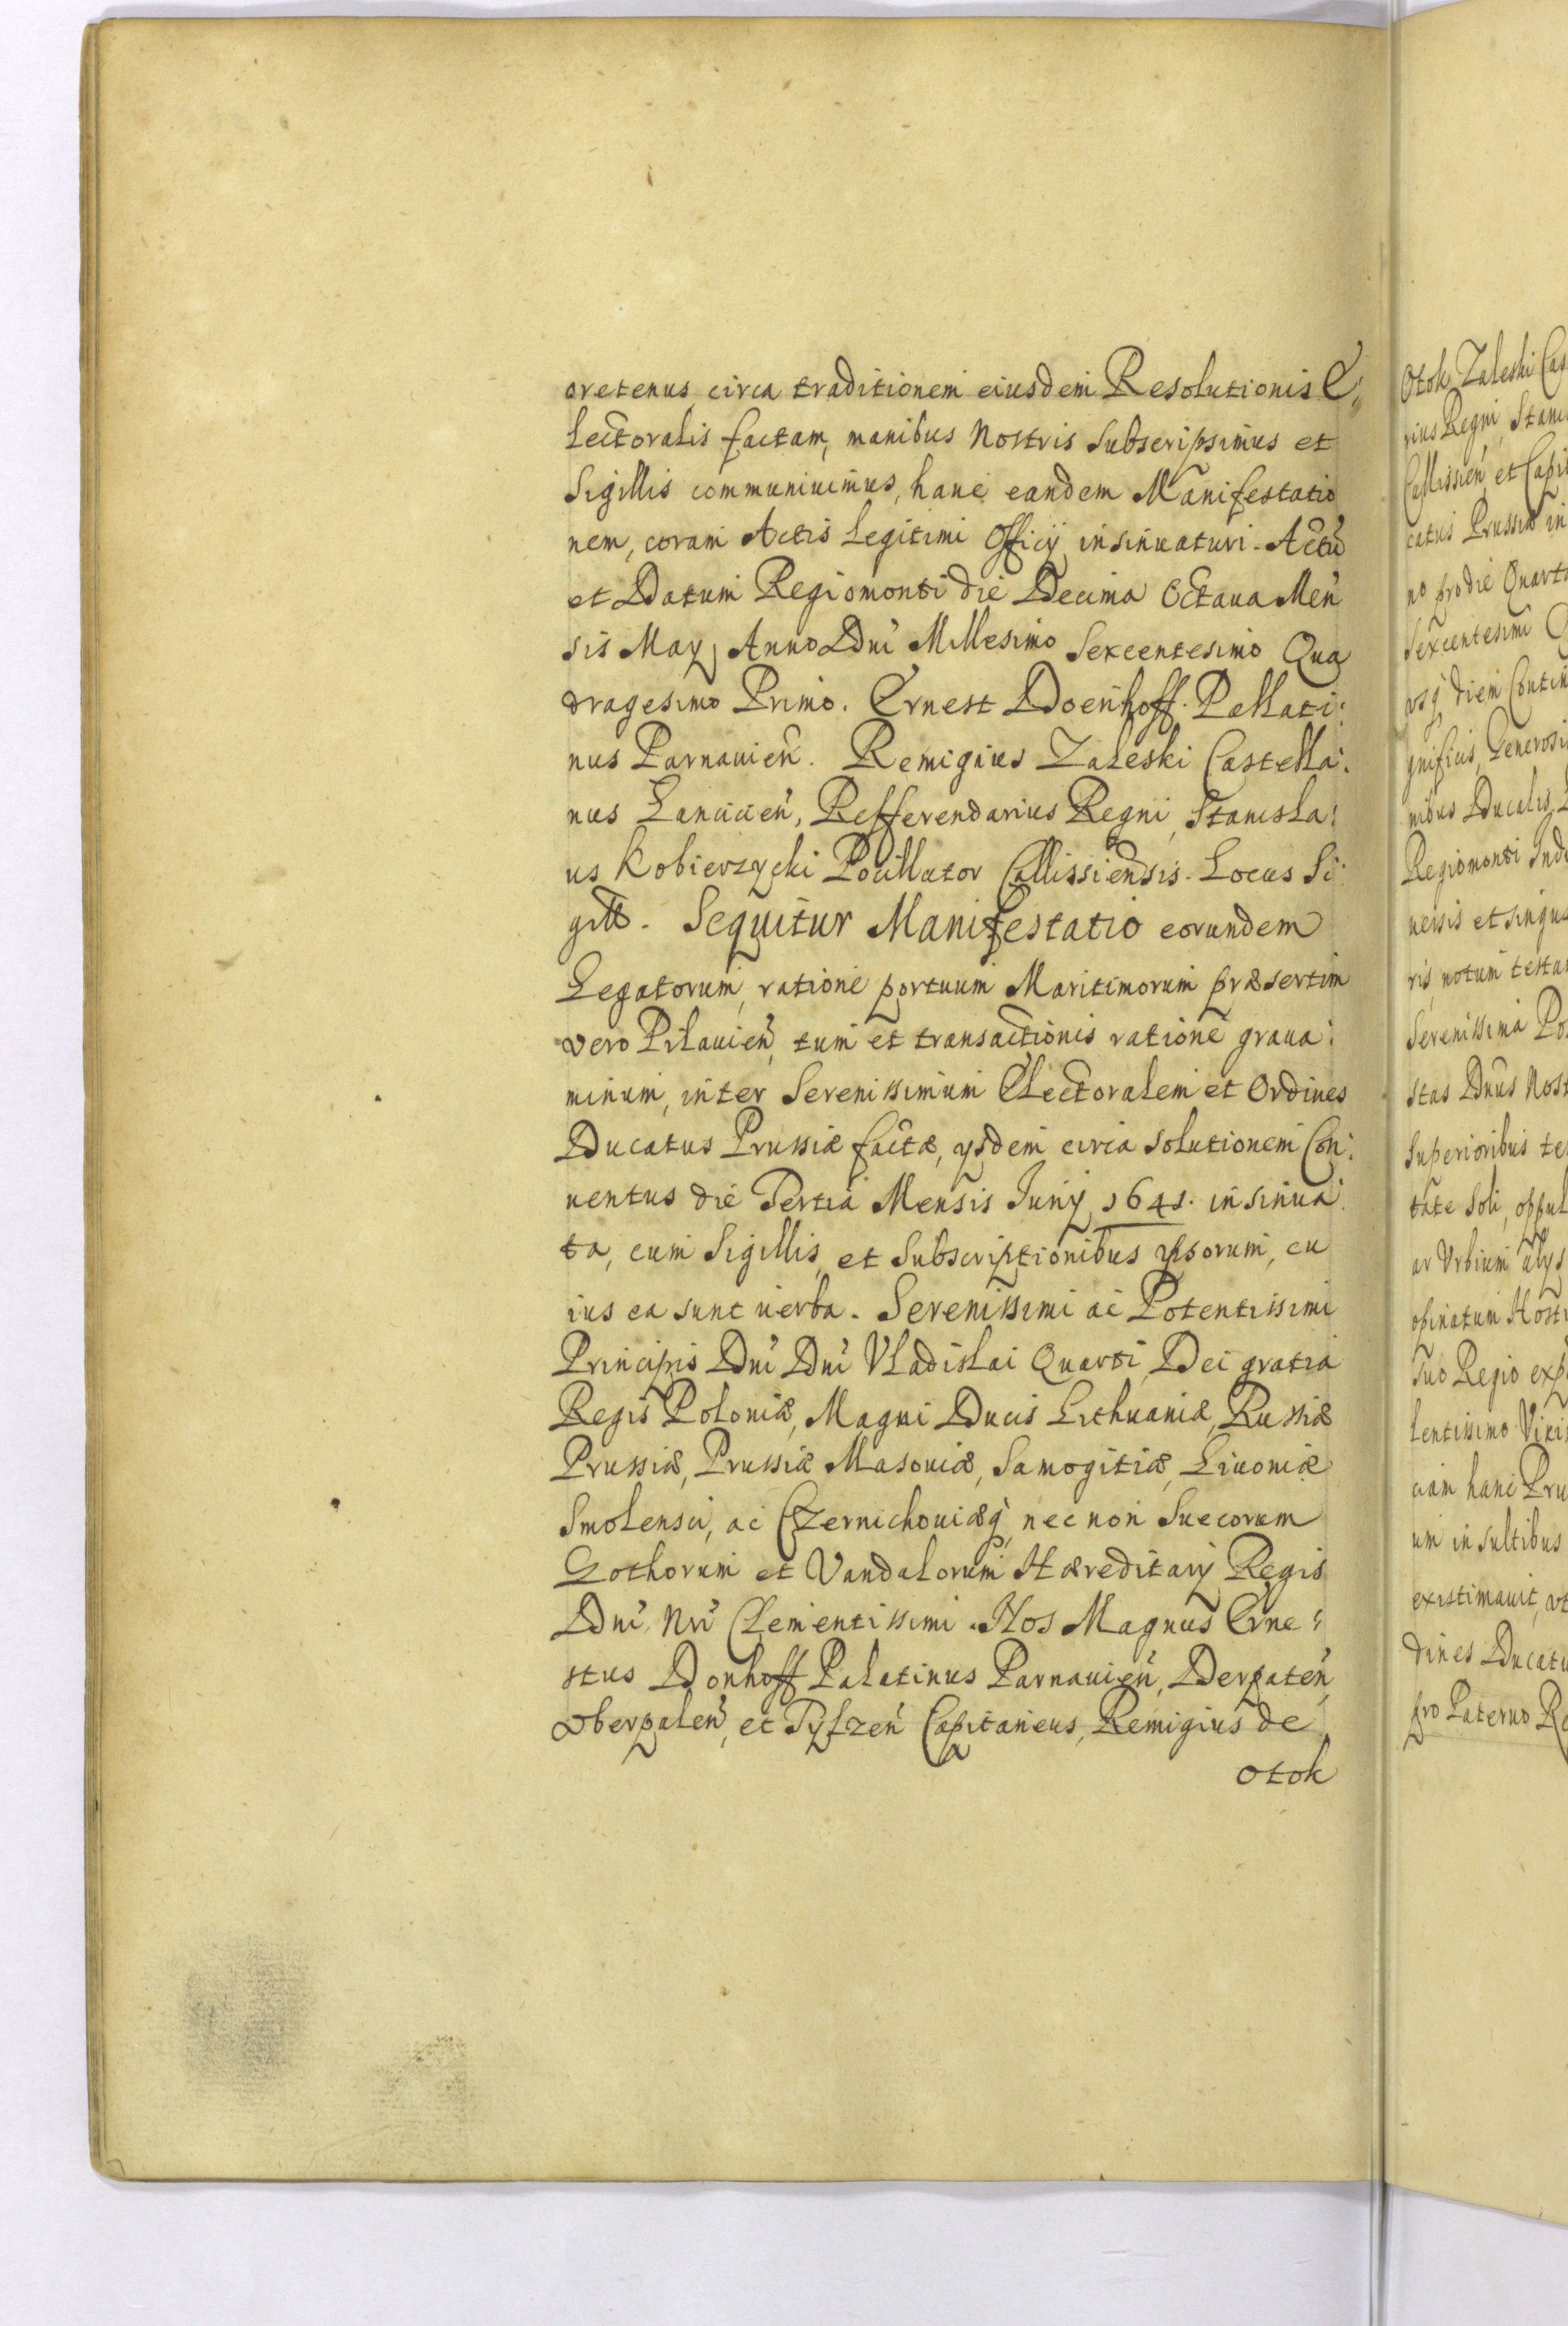 oretenus circa traditionem eiusdem Resolutionis E:
lectoralis factam, manibus Nostris Subscripsimus et
Sigillis communiuimus, hanc eandem Manifestatio
nem, coram Actis Legitimi Officij insinuaturi. Actũ
et Datum Regiomonti die Decima Octaua Men
sis Maij Anno Dni Millesimo Sexcentesimo Qua
dragesimo Primo. Ernest Doenhoff Pallati:
nus Parnauien. Remigius Zaleski Castella:
nus Lancicien, Refferendarius Regni, Stanisla:
us Kobierzycki Pocillator Callissiensis. Locus Si:
gilli. Sequitur Manifestatio eorundem
Legatorum, ratione portuum Maritimorum præsertim
vero Pilauien, tum et transactionis ratione graua:
minum, inter Serenissimum Electoralem et Ordines
Ducatus Prussiæ factæ, ijsdem circa solutionem Con:
uentus die Tertia Mensis Junij 1641. insinua:
ta, cum Sigillis, et Subscriptionibus ipsorum, cu
ius ea sunt uerba. Serenissimi ac Potentissimi
Principis Dni Dni Vladislai Quarti, Dei gratia
Regis Poloniæ, Magni Ducis Lithuaniæ, Russiæ
Prussiæ, Prussiæ Masouiæ, Samogitiæ, Liuoniæ
Smolensci, ac Czernichouiæq, nec non Suecorum
Gothorum et Vandalorum Hæreditarij Regis
Dni Nri Clementissimi. Nos Magnus Erne:
stus Donhoff Palatinus Parnauien, Derpaten,
Oberpalen, et Tylzen Capitaneus, Remigius de
Otok
Otok Zaleski Cas
rius Regni, Stani
Callissien et Capi
catus Prussiæ in
no pro die Quart
Sexcentesimi
usq diem Contin
gnificis, Generosi
nibus Ducalis,
Regiomonti Ind
uersis et singu
ris, notum testa
Serenissima Po
stas Dnus Nost
Superioribus te
tate Soli, oppul
ar Vrbium alijs
opinatum Hosti
suo Regio exp
lentissimo Viri
ciam hanc Pru
um insultibus
existimauit, vt
dines Ducatu
pro Paterno Re